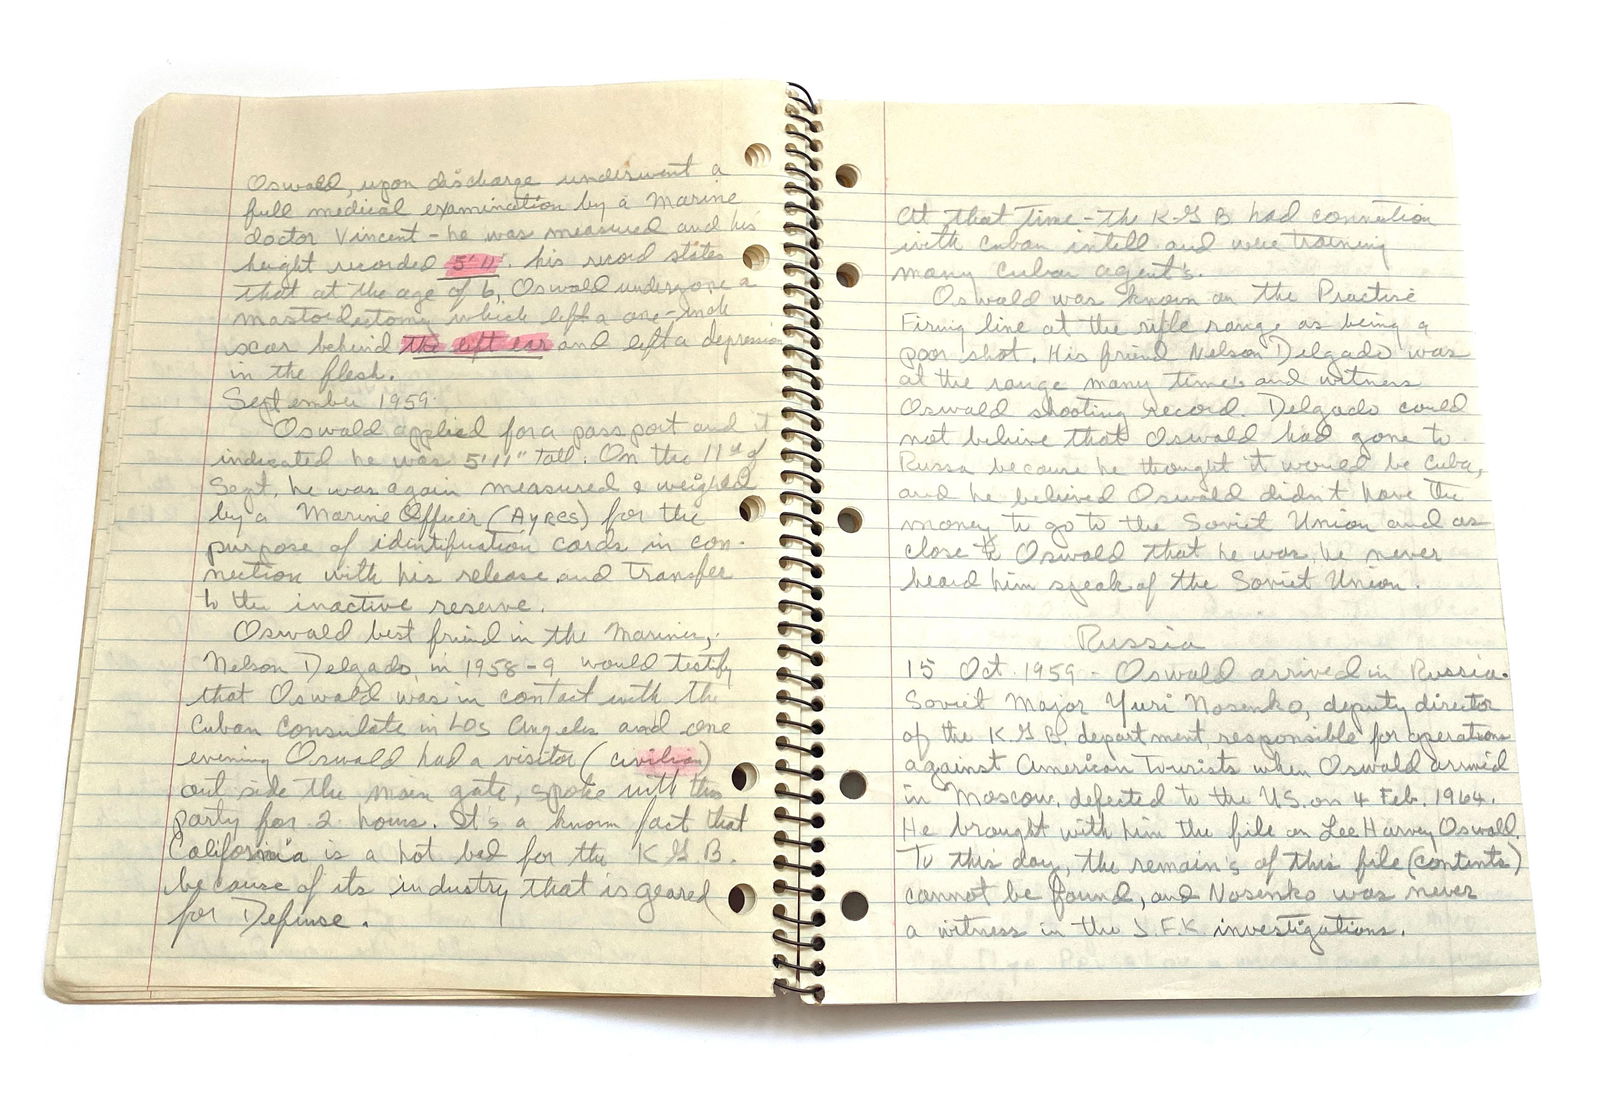 Oswald, upon discharge underwent a
full medical examination by a Marine
doctor Vincent - he was measured and his
height recorded 5'11". his record states
that at the age of 6, Oswald undergone a
mastoidectomy which left a one-inch
scar behind the left ear and left a depression
in the flesh.
September 1959.
Oswald applied for a passport and it
indicated he was 5'11" tall. On the 11th of
Sept, he was again measured & weighed
by a Marine Officer (AyRES) for the
purpose of identification cards in con-
nection with his release and transfer
to the inactive reserve.
Oswald best friend in the Marines,
Nelson Delgado, in 1958-9 would testify
that Oswald was in contact with the
Cuban Consulate in Los Angeles and one
evening Oswald had a visitor (civilian)
out side the main gate, spoke with this
party for 2 hours. It's a known fact that
California is a hot bed for the K.G.B.
because of its industry that is geared
for Defense.
At that time - the K-G B had connection
with Cuban intell and were training
many Cuban agent's.
Oswald was known on the Practise
Firing line at the rifle range as being a
poor shot. His friend Nelson Delgado was
at the range many times and witness
Oswald shooting record. Delgado could
not belive that Oswald had gone to
Russa because he thought it would be Cuba,
and he believed Oswald didn't have the
money to go to the Soviet Union and as
close to Oswald that he was he never
heard him speak of the Soviet Union.
Russia
15 Oct. 1959 - Oswald arrived in Russia.
Soviet Major Yuri Nosenko, deputy director
of the K.G.B. department, responsible for operations
against American Tourists when Oswald arrived
in Moscow, defected to the U.S. on 4 Feb. 1964.
He brought with him the file on Lee Harvey Oswald.
To this day, the remain's of this file (contents)
cannot be found, and Nosenko was never
a witness in the J.F.K. investigations.